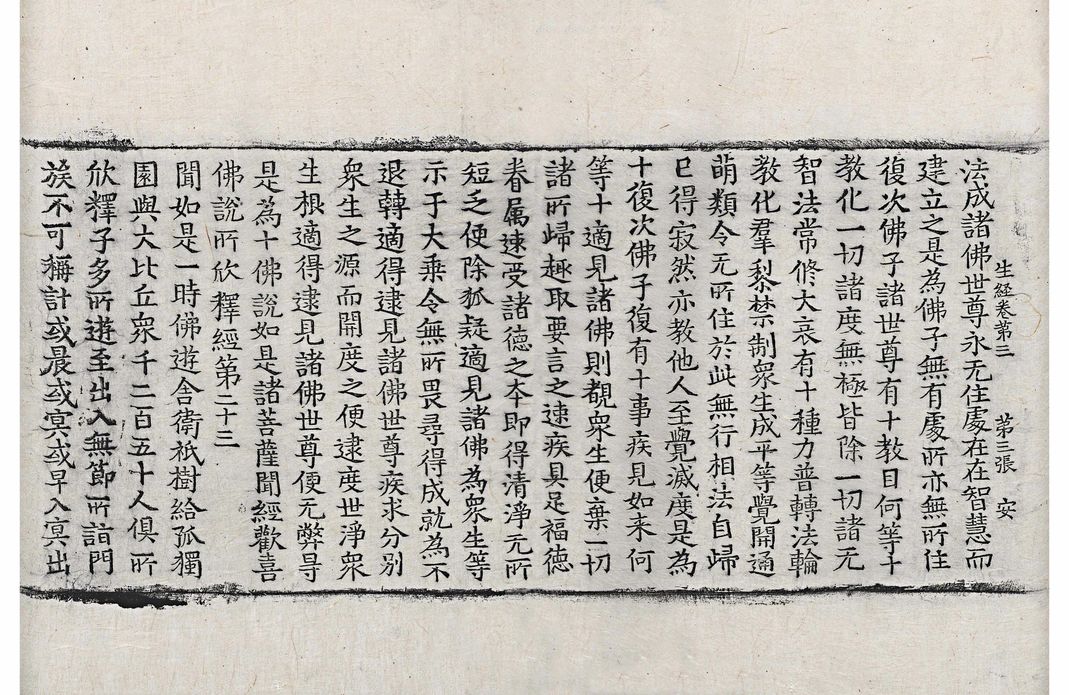 生経卷第三　第三張　安
法成諸佛世尊永无住處在在智慧而
建立之是為佛子無有處所亦無所住
復次佛子諸世尊有十教目何等十
教化一切諸度無極皆除一切諸无
智法常修大哀有十種力普轉法輪
教化羣黎禁制衆生成平等覺開通
萌類令无所住於此無行相法自歸
已得寂然亦教他人至覺滅度是為
十復次佛子復有十事疾見如来何
等十適見諸佛則覩衆生便棄一切
諸所歸趣取要言之速疾具足福德
眷属速受諸德之夲即得清淨无所
短乏便除狐疑適見諸佛為衆生等
示于大乗令無所畏尋得成就為不
退轉適得逮見諸佛世尊疾求分別
衆生之源而開度之便逮度世淨衆
生根適得逮見諸佛世尊便无弊㝵
是為十佛說如是諸菩薩聞經歡喜
佛說所欣釋經第二十三
聞如是一時佛遊舍衛祇樹給孤獨
園與大比丘衆千二百五十人俱所
欣釋子多所遊至出入無節所詣門
族不可稱計或晨或冥或早入冥出